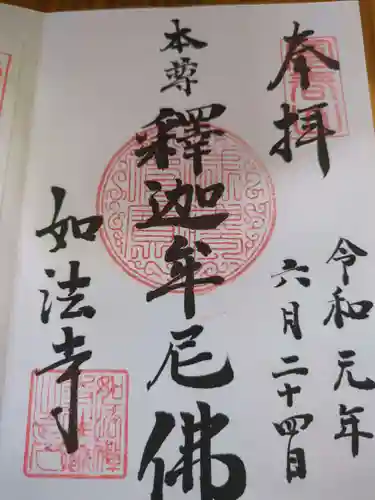 奉拝
令和元年
六月二十四日
本尊
釋迦牟尼佛
如法寺